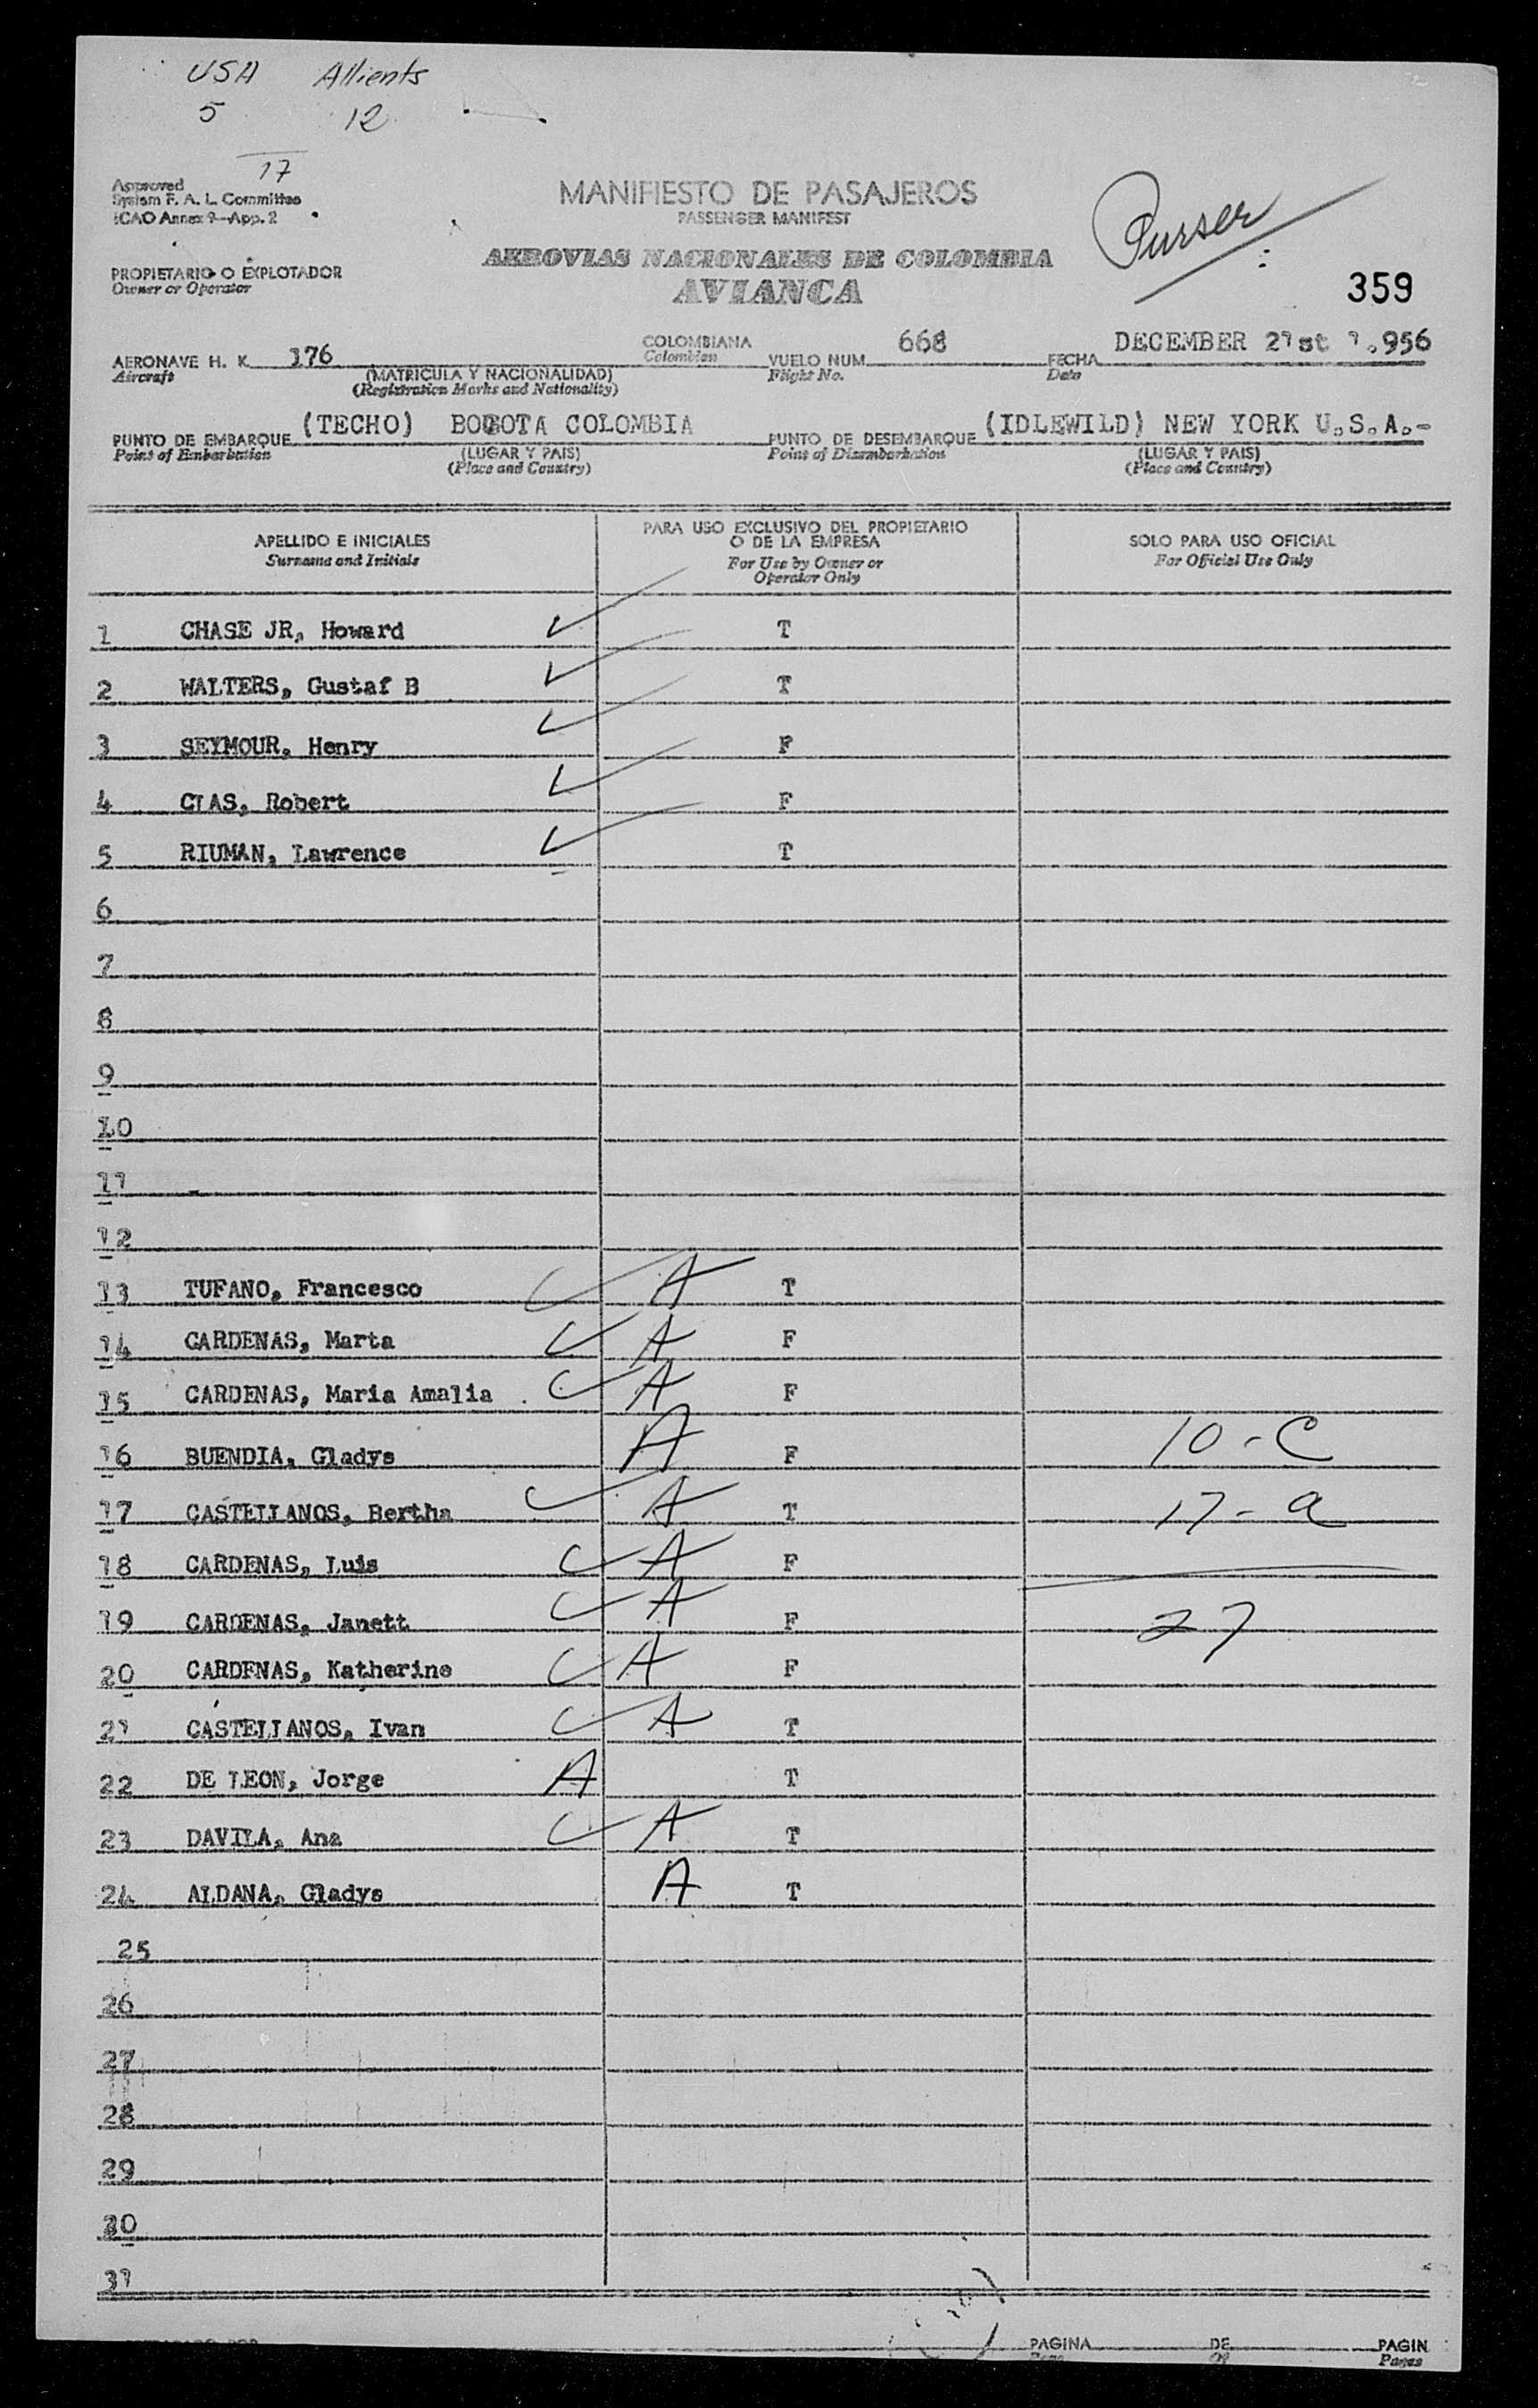 USA Allients
5 12
17
Approved
System F. A. L. Committee
ICAO Annex 9—App. 2
MANIFIESTO DE PASAJEROS
PASSENGER MANIFEST
Purser
PROPIETARIO O EXPLOTADOR
Owner or Operator
AEROVIAS NACIONALES DE COLOMBIA
AVIANCA
359
AERONAVE H. K. 176 COLOMBIANA VUELO NUM. 668 FECHA DECEMBER 21st 1.956
Aircraft (MATRICULA Y NACIONALIDAD) Colombian Flight No. Date
(Registration Marks and Nationality)
PUNTO DE EMBARQUE (TECHO) BOGOTA COLOMBIA PUNTO DE DESEMBARQUE (IDLEWILD) NEW YORK U.S.A.-
Point of Embarkation (LUGAR Y PAIS) Point of Disembarkation (LUGAR Y PAIS)
(Place and Country) (Place and Country)
APELLIDO E INICIALES PARA USO EXCLUSIVO DEL PROPIETARIO SOLO PARA USO OFICIAL
O DE LA EMPRESA
Surname and Initials For Use by Owner or For Official Use Only
Operator Only
1 CHASE JR, Howard T
2 WALTERS, Gustaf B T
3 SEYMOUR, Henry F
4 CLAS, Robert F
5 RIUMAN, Lawrence T
6
7
8
9
10
11
12
13 TUFANO, Francesco A T
14 CARDENAS, Marta A F
15 CARDENAS, Maria Amalia A F
16 BUENDIA, Gladys A F 10-C
17 CASTELLANOS, Bertha A T 17-a
18 CARDENAS, Luis A F
19 CARDENAS, Janett A F 27
20 CARDENAS, Katherine A F
21 CASTELLANOS, Ivan A T
22 DE LEON, Jorge A T
23 DAVILA, Ana A T
24 ALDANA, Gladys A T
25
26
27
28
29
30
31
PAGINA DE PAGIN
Pages